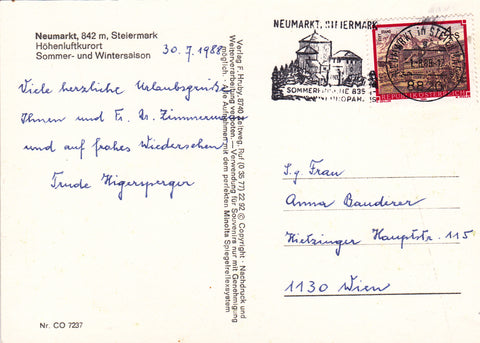 Neumarkt, 842 m, Steiermark
Höhenluftkurort
Sommer- und Wintersaison
30.7.1988
Viele herzliche Urlaubsgrüsse
Ihnen und Fr. Dr. Zimmermann
und auf frohes Wiedersehen!
Trude Higersperger
Nr. CO 7237
Verlag F. Hruby, 8740 Zeltweg, Ruf (0 35 77) 22 92 © Copyright · Nachdruck und
Weiterverarbeitung verboten — Verwendung für Souvenirs nur mit Genehmigung
möglich. · Alle Aufnahmen mit dem perfekten Minolta Spiegelreflexsystem
NEUMARKT, STEIERMARK
SOMMERFRISCHE 835
REPUBLIK ÖSTERREICH
S.g. Frau
Anna Bauderer
Hietzinger Hauptstr. 115
1130 Wien